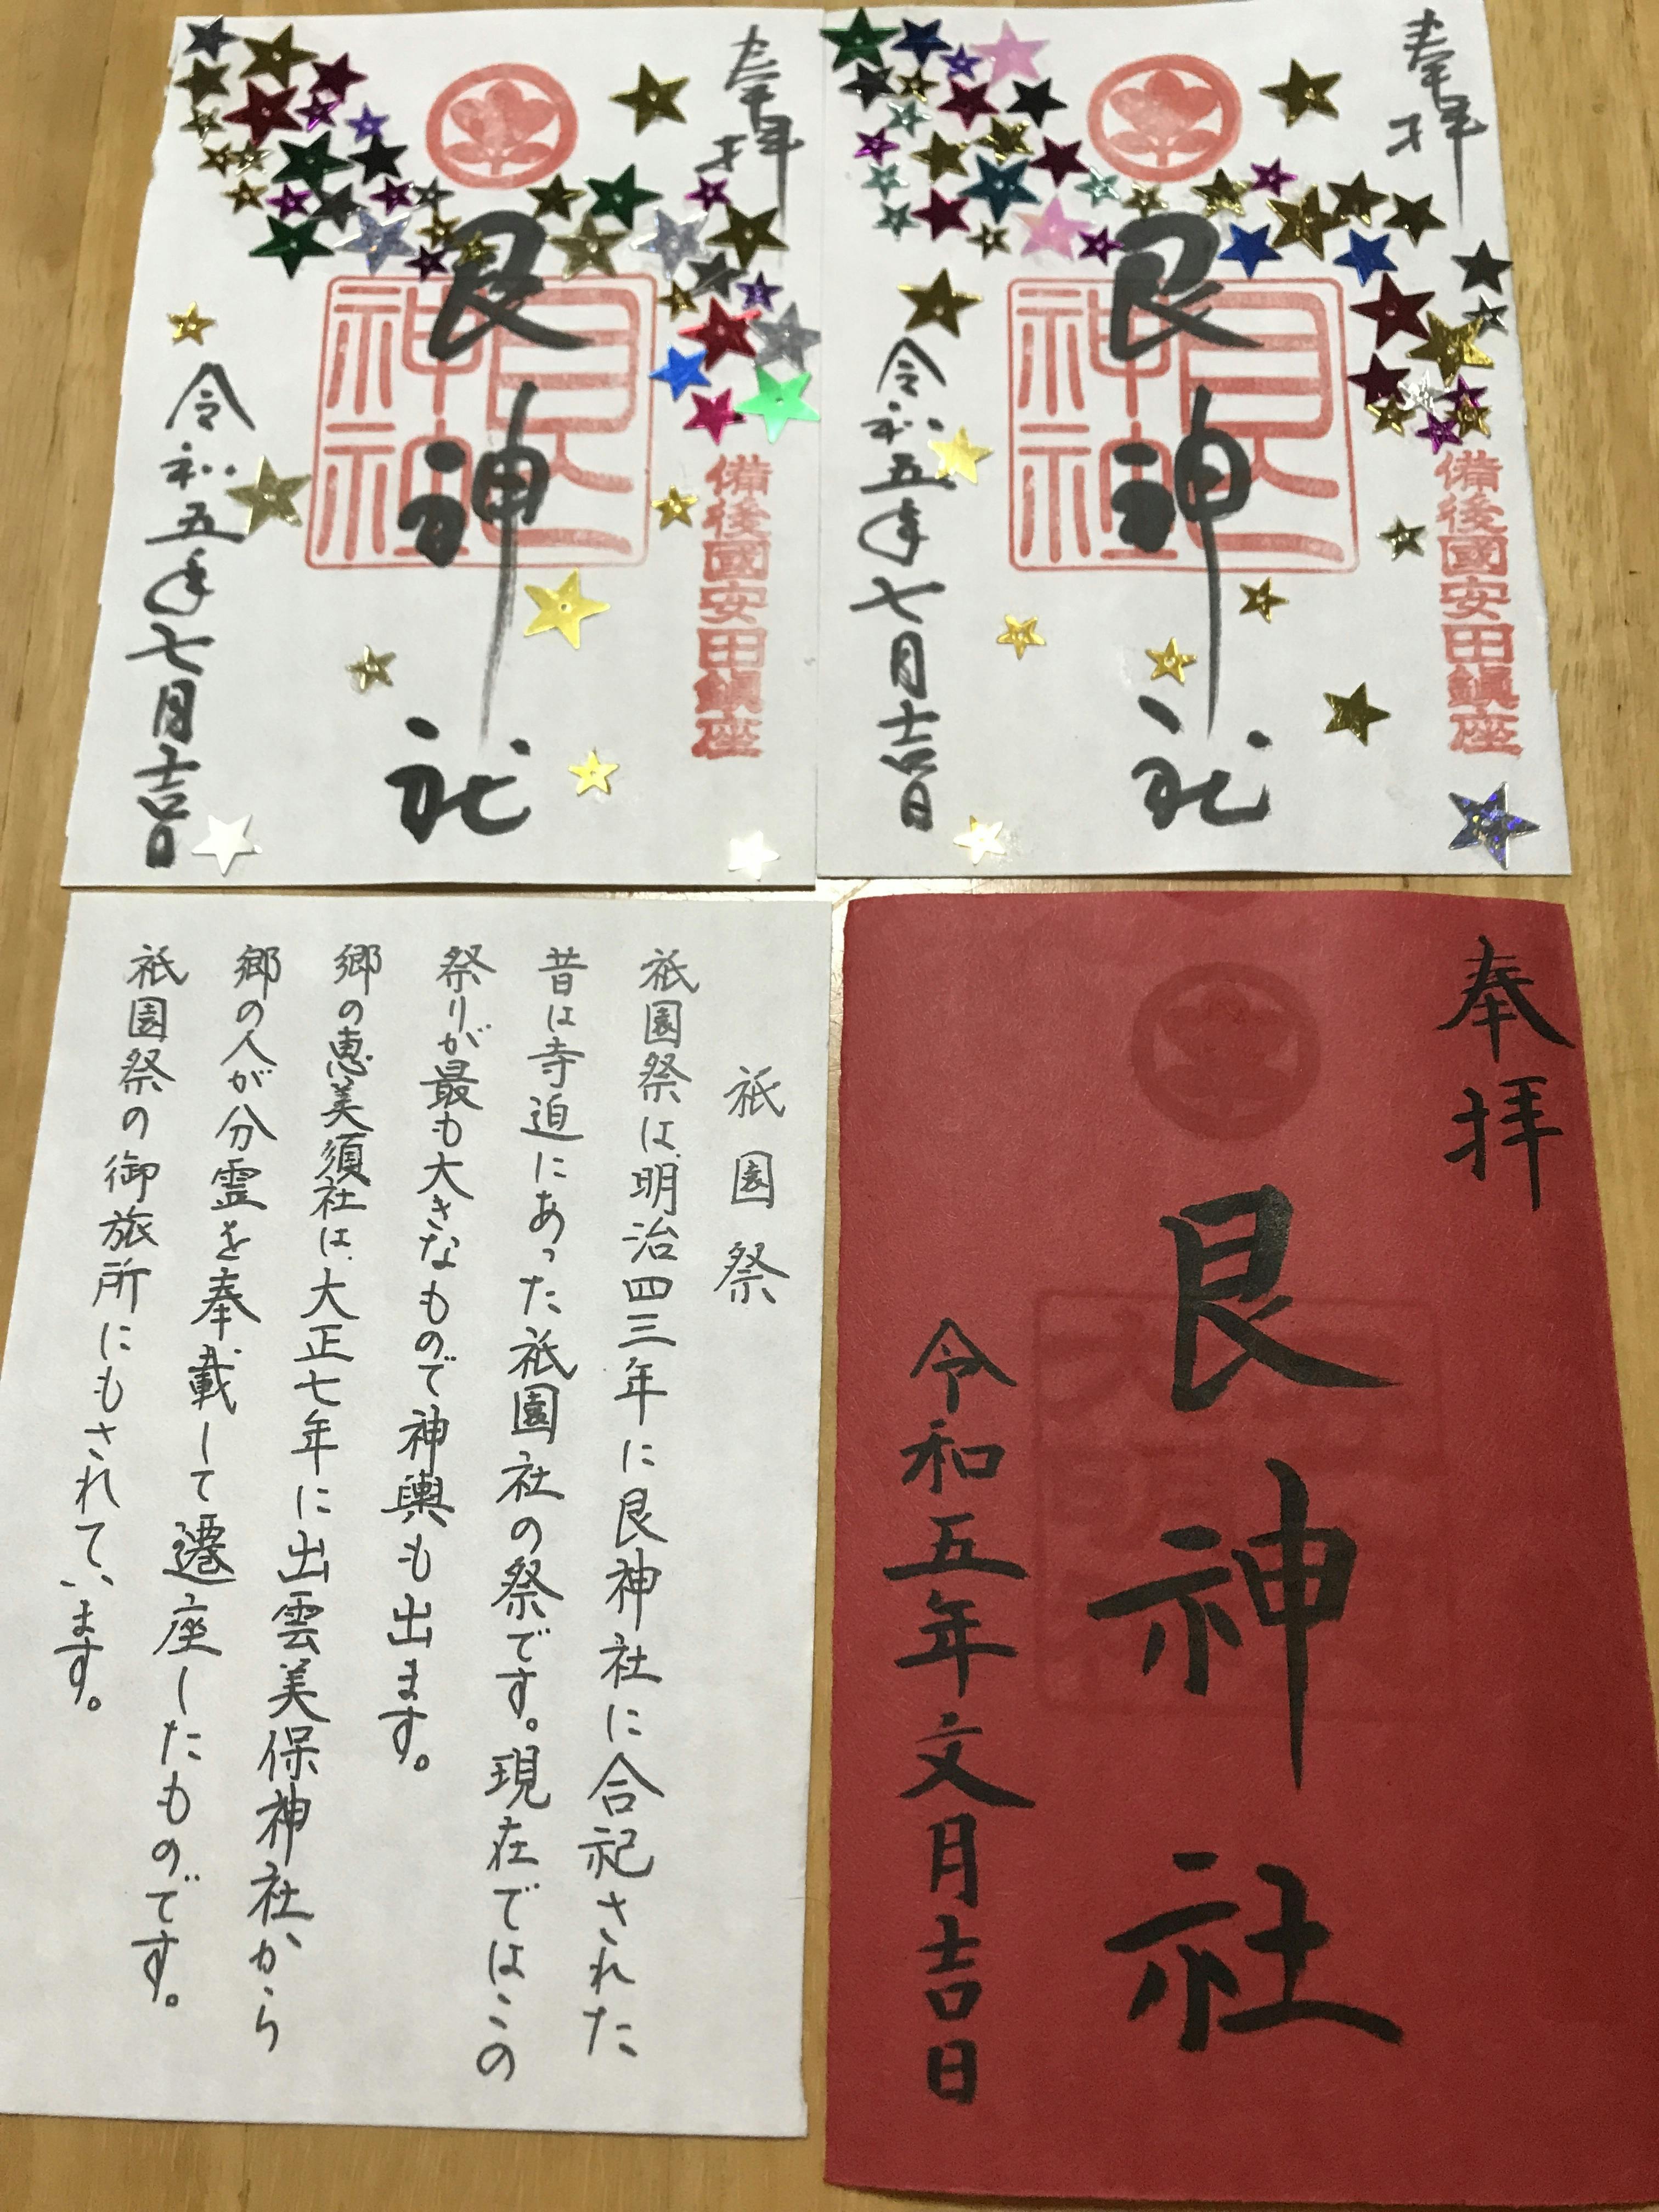 奉拝
艮神社
艮神社
備後國安田鎮座
令和五年七月吉日
奉拝
艮神社
艮神社
備後國安田鎮座
令和五年七月吉日
祇園祭
祇園祭は、明治四三年に艮神社に合祀された
昔は寺迫にあった祇園社の祭です。現在ではこの
祭りが最も大きなもので神輿も出ます。
郷の恵美須社は、大正七年に出雲美保神社から
郷の人が分霊を奉載して遷座したものです。
祇園祭の御旅所にもされています。
奉拝
艮神社
令和五年文月吉日